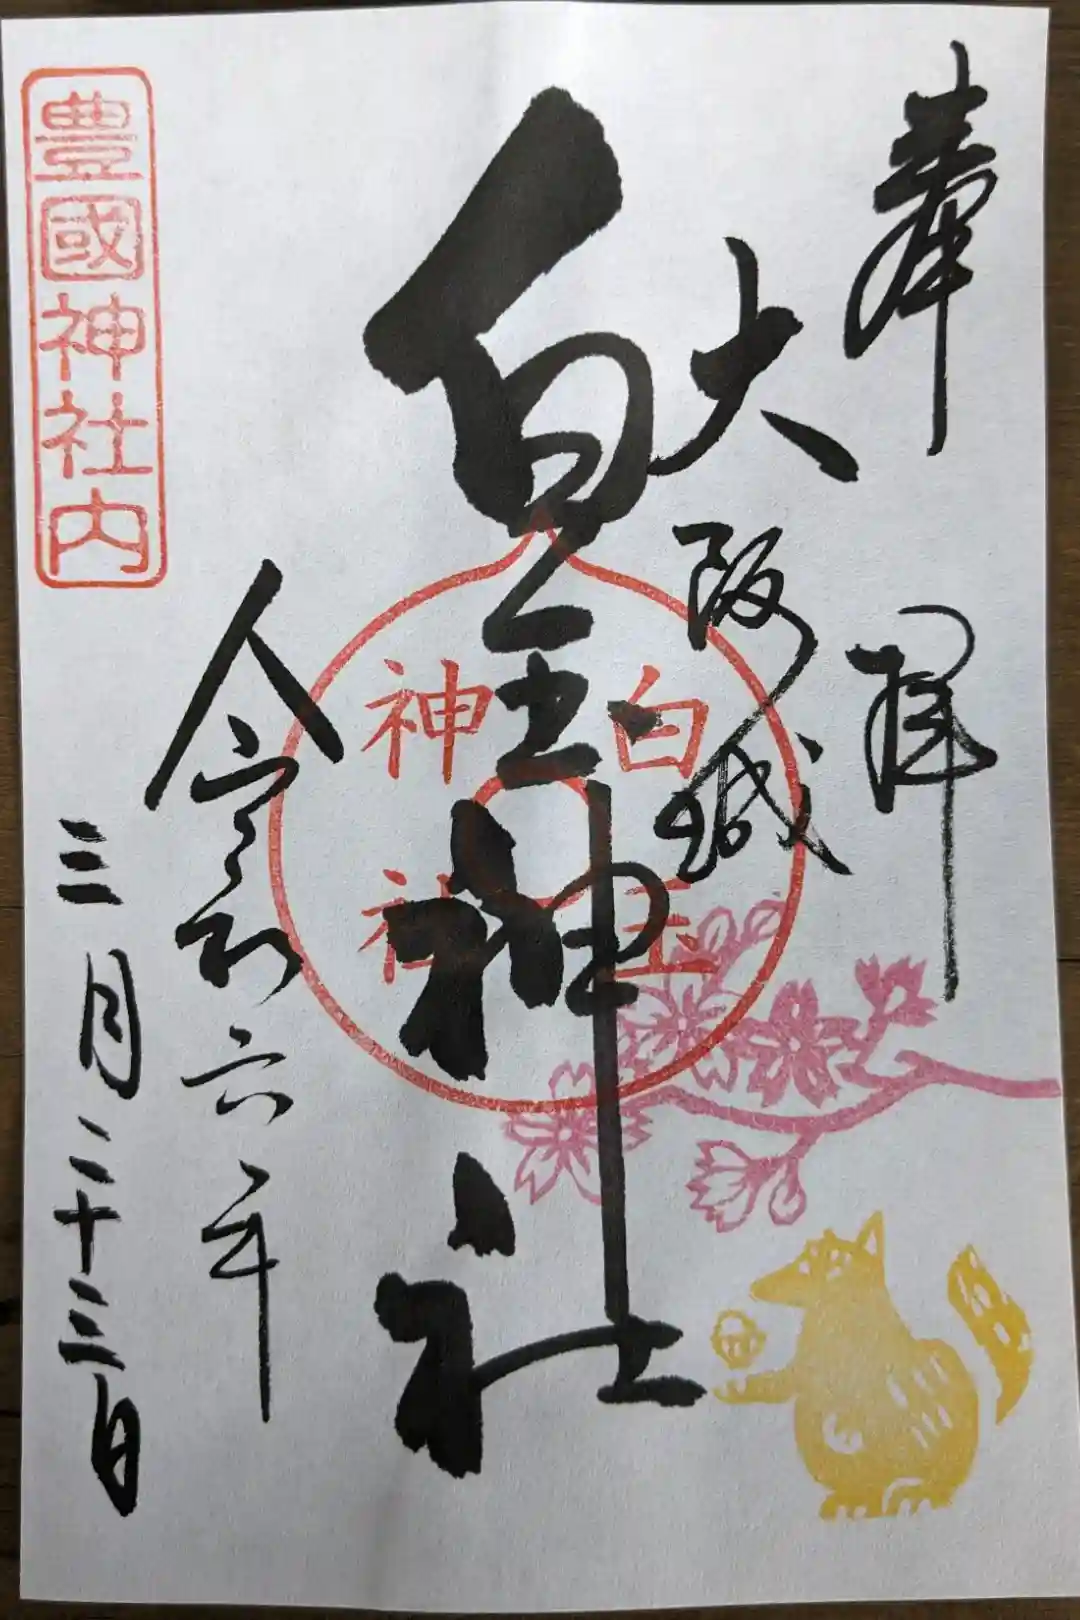 奉拝
大阪城
白玉神社
白玉
神社
令和六年
三月二十三日
豊國神社内